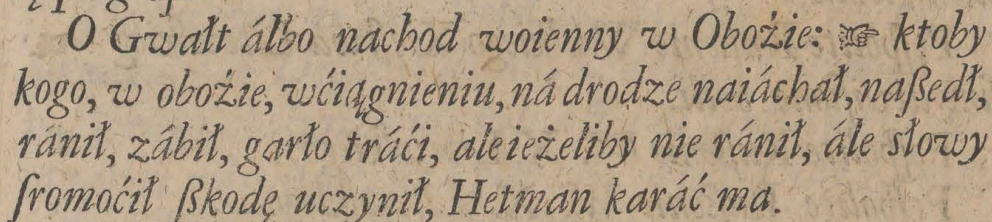 O Gwałt álbo nachod woienny w Oboźie: ☞ ktoby
kogo, w oboźie, wćiągnieniu, ná drodze naiáchał, naßedł,
ránił, zábił, garło tráći, ale ieżeliby nie ránił, ále słowy
sromoćił ßkodę uczynił, Hetman karáć ma.